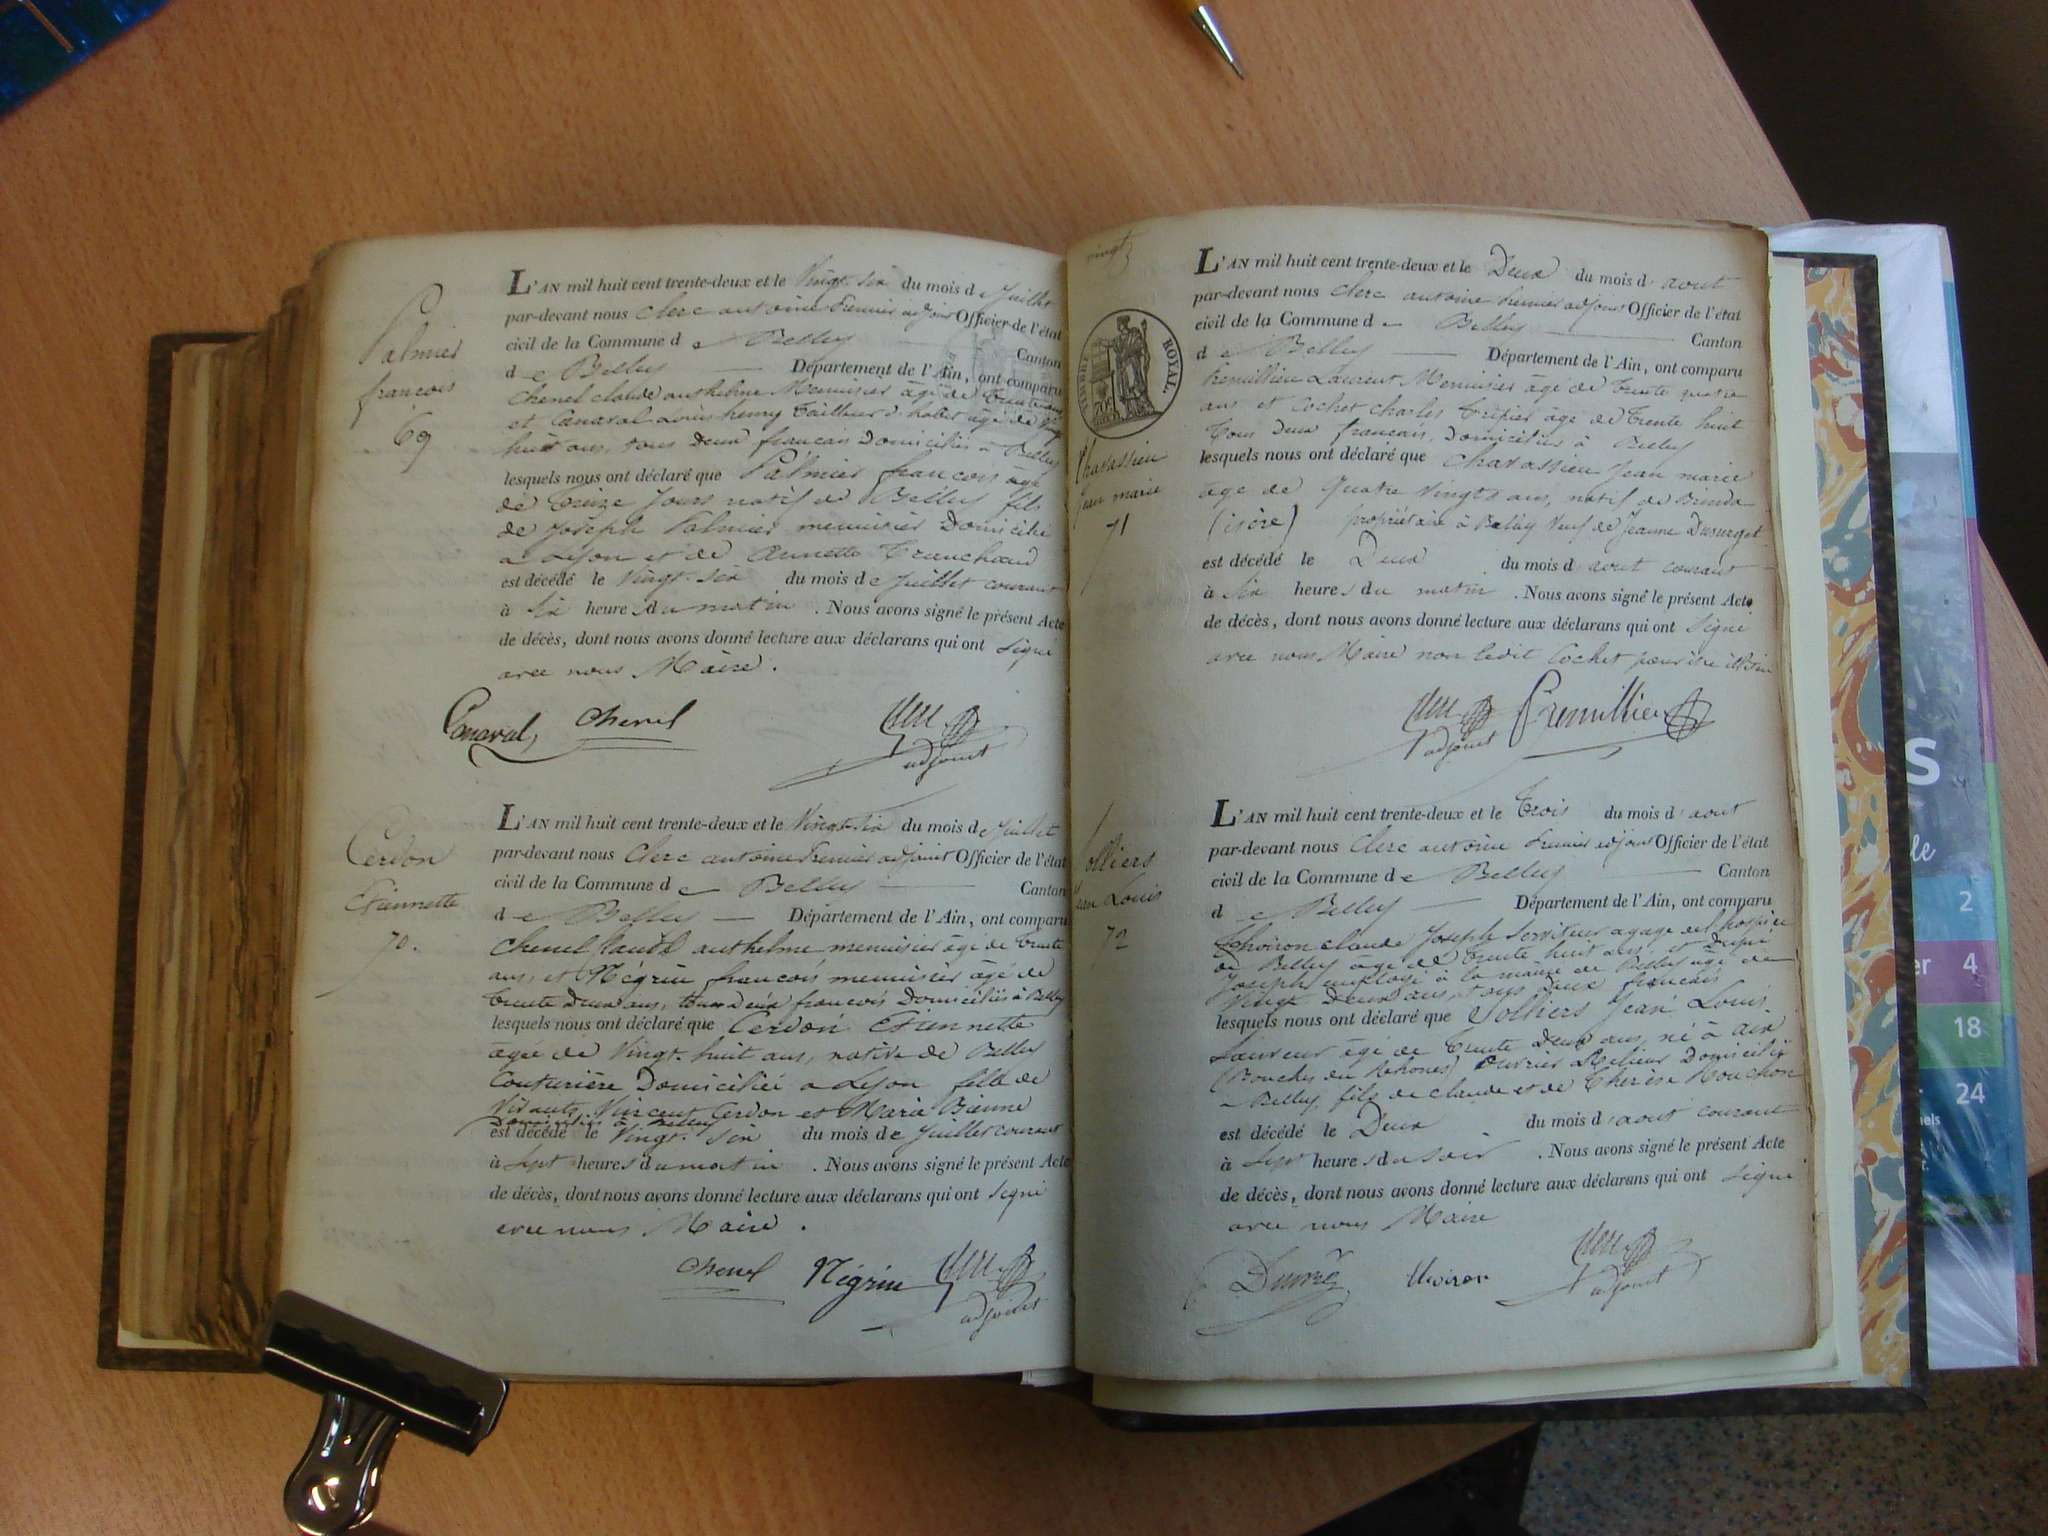 Palmier
françois
69
L'AN mil huit cent trente-deux et le Vingt-six du mois de Juillet
par-devant nous Clerc antoine Premier adjoint Officier de l'état
civil de la Commune de Belley Canton
de Belley Département de l'Ain, ont comparu
Chenel claude anthelme Menuisier âgé de Trente ans
et Canaval Louis henry Tailleur d'habit âgé de Vingt
huit ans, tous Deux francais Domiciliés à Belley
lesquels nous ont déclaré que Palmier françois âgé
de Treize Jours natif de Belley fils
de Joseph Palmier menuisier Domicilié
a Lyon et de Annette Tranchand
est décédé le Vingt-six du mois de Juillet courant
à Six heures du matin . Nous avons signé le présent Acte
de décès, dont nous avons donné lecture aux déclarans qui ont Signé
avec nous Maire.
Canaval, Chenel Clerc
adjoint
Cerdon
Etiennette
70.
L'AN mil huit cent trente-deux et le Vingt-Six du mois de Juillet
par-devant nous Clerc antoine Premier adjoint Officier de l'état
civil de la Commune de Belley Canton
de Belley Département de l'Ain, ont comparu
Chenel Claude anthelme menuisier âgé de Trente
ans, et Négrin françois menuisier âgé de
Trente Deux ans, tous Deux françois Domiciliés à Belley
lesquels nous ont déclaré que Cerdon Etiennette
âgée de Vingt-huit ans, native de Belley
Couturière Domiciliée a Lyon fille de
Vivants, Vincent Cerdon et Marie Bienne
Domiciliés à Belley
est décédé le Vingt-Six du mois de Juillet courant
à Sept heures du matin . Nous avons signé le présent Acte
de décès, dont nous avons donné lecture aux déclarans qui ont Signé
avec nous Maire.
Chenel Négrin Clerc
adjoint
vingt
TIMBRE ROYAL
70c
Chavassieu
Jean marie
71
L'AN mil huit cent trente-deux et le Deux du mois d'aout
par-devant nous Clerc antoine Premier adjoint Officier de l'état
civil de la Commune de Belley Canton
de Belley Département de l'Ain, ont comparu
Premillieu Laurent Menuisier âgé de Trente quatre
ans et Cochet Charles Tripier âgé de Trente huit
Tous Deux francais, Domiciliés à Belley
lesquels nous ont déclaré que Chavassieu Jean marie
âgé de Quatre Vingts ans, natif de
(isère) propriétaire à Belley Veuf de Jeanne Dusurget
est décédé le Deux du mois d'aout courant
à Six heures du matin . Nous avons signé le présent Acte
de décès, dont nous avons donné lecture aux déclarans qui ont Signé
avec nous Maire non ledit Cochet pour
Clerc Premillieu
adjoint
Solliers
Jean Louis
72
L'AN mil huit cent trente-deux et le Trois du mois d'aout
par-devant nous Clerc antoine Premier adjoint Officier de l'état
civil de la Commune de Belley Canton
de Belley Département de l'Ain, ont comparu
Thoiron claude Joseph Serviteur a gage de l'hospice
de Belley âgé de Trente huit ans, et
Joseph employé à la mairie de Belley âgé de
Vingt Deux ans, tous deux français
lesquels nous ont déclaré que Solliers Jean Louis
âgé de Trente Deux ans, né à Aix
(Bouches du Rhones) Ouvrier Relieur Domicilié
a Belley, fils de claude et de Thérèse Mouchon
est décédé le Deux du mois d'aout courant
à Sept heures du soir . Nous avons signé le présent Acte
de décès, dont nous avons donné lecture aux déclarans qui ont Signé
avec nous Maire
Clerc
adjoint
s
le
2
er 4
18
24
iels